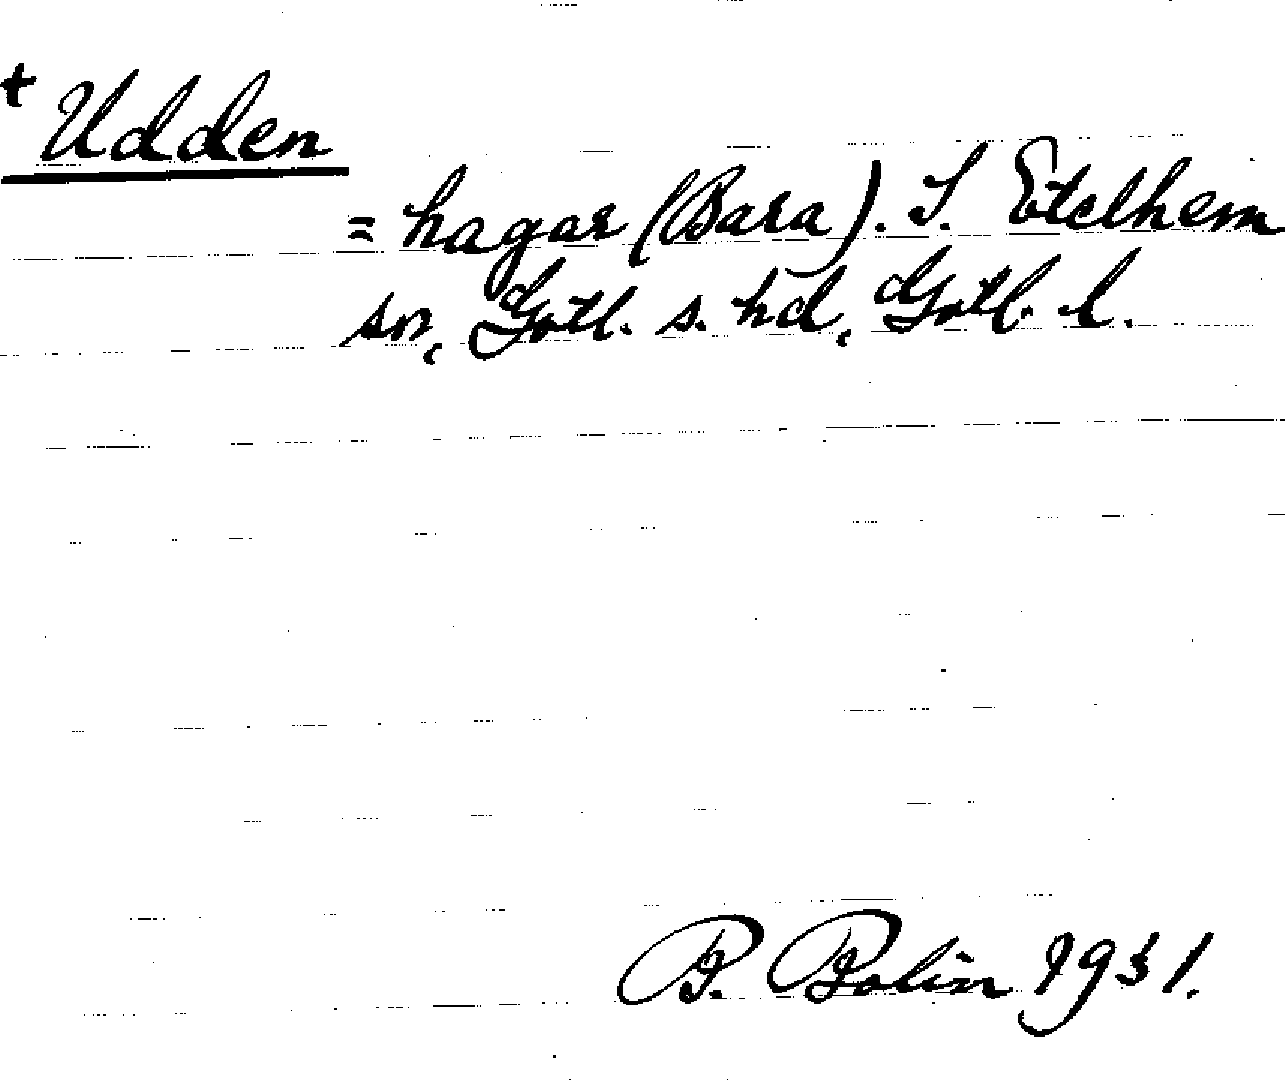 + Udden
= hagar (Bara). I. Etelhem
sn, Gotl. s. hd, Gotl. l.
B. Bolin 1931.